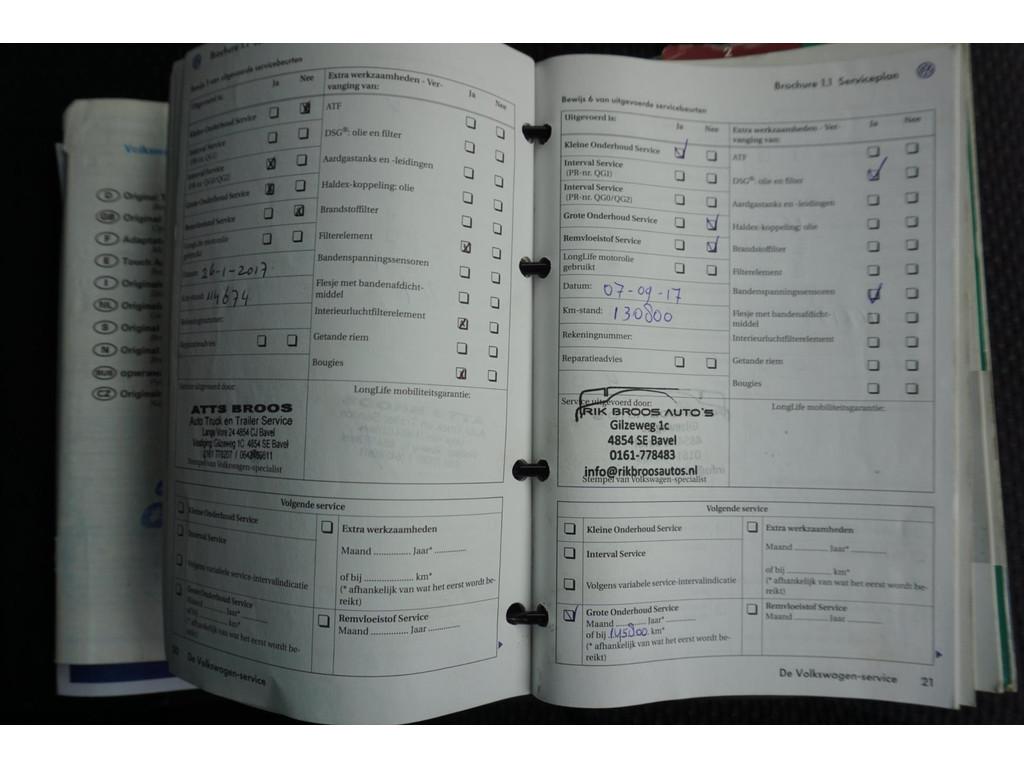 Brochure 1.1
Bewijs 5 van uitgevoerde servicebeurten
Uitgevoerd is:
Ja
Nee
Kleine Onderhoud Service
Interval Service
(PR-nr. QG1)
Interval Service
(PR-nr. QG0/QG2)
Grote Onderhoud Service
Remvloeistof Service
LongLife motorolie
gebruikt
Datum: 26-1-2017
Km-stand: 114674
Rekeningnummer:
Reparatieadvies
Extra werkzaamheden - Ver-
vanging van:
Ja
Nee
ATF
DSG®: olie en filter
Aardgastanks en -leidingen
Haldex-koppeling: olie
Brandstoffilter
Filterelement
Bandenspanningssensoren
Flesje met bandenafdicht-
middel
Interieurluchtfilterelement
Getande riem
Bougies
Service uitgevoerd door:
ATTS BROOS
Auto Truck en Trailer Service
Lange Vore 24 4854 CJ Bavel
Vestiging: Gilzeweg 1C 4854 SE Bavel
Stempel van Volkswagen-specialist
LongLife mobiliteitsgarantie:
Volgende service
Kleine Onderhoud Service
Interval Service
Volgens variabele service-intervalindicatie
Grote Onderhoud Service
Maand ........... Jaar*...........
of bij ........... km*
(* afhankelijk van wat het eerst wordt be-
reikt)
Extra werkzaamheden
Maand ............... Jaar* ............
of bij ........................ km*
(* afhankelijk van wat het eerst wordt be-
reikt)
Remvloeistof Service
Maand ............ Jaar ............
De Volkswagen-service
Brochure 1.1 Serviceplan
Bewijs 6 van uitgevoerde servicebeurten
Uitgevoerd is:
Ja
Nee
Kleine Onderhoud Service
Interval Service
(PR-nr. QG1)
Interval Service
(PR-nr. QG0/QG2)
Grote Onderhoud Service
Remvloeistof Service
LongLife motorolie
gebruikt
Datum: 07-09-17
Km-stand: 130800
Rekeningnummer:
Reparatieadvies
Extra werkzaamheden - Ver-
vanging van:
Ja
Nee
ATF
DSG®: olie en filter
Aardgastanks en -leidingen
Haldex-koppeling: olie
Brandstoffilter
Filterelement
Bandenspanningssensoren
Flesje met bandenafdicht-
middel
Interieurluchtfilterelement
Getande riem
Bougies
Service uitgevoerd door:
RIK BROOS AUTO'S
Gilzeweg 1c
4854 SE Bavel
0161-778483
info@rikbroosautos.nl
Stempel van Volkswagen-specialist
LongLife mobiliteitsgarantie:
Volgende service
Kleine Onderhoud Service
Interval Service
Volgens variabele service-intervalindicatie
Grote Onderhoud Service
Maand ........... Jaar*...........
of bij 145800 km*
(* afhankelijk van wat het eerst wordt be-
reikt)
Extra werkzaamheden
Maand ............ Jaar* ............
of bij ........................ km*
(* afhankelijk van wat het eerst wordt be-
reikt)
Remvloeistof Service
Maand ............ Jaar ............
De Volkswagen-service 21
D Original
GB Original
F
E
I Original
NL Original
S Original
N Original
RUS
CZ